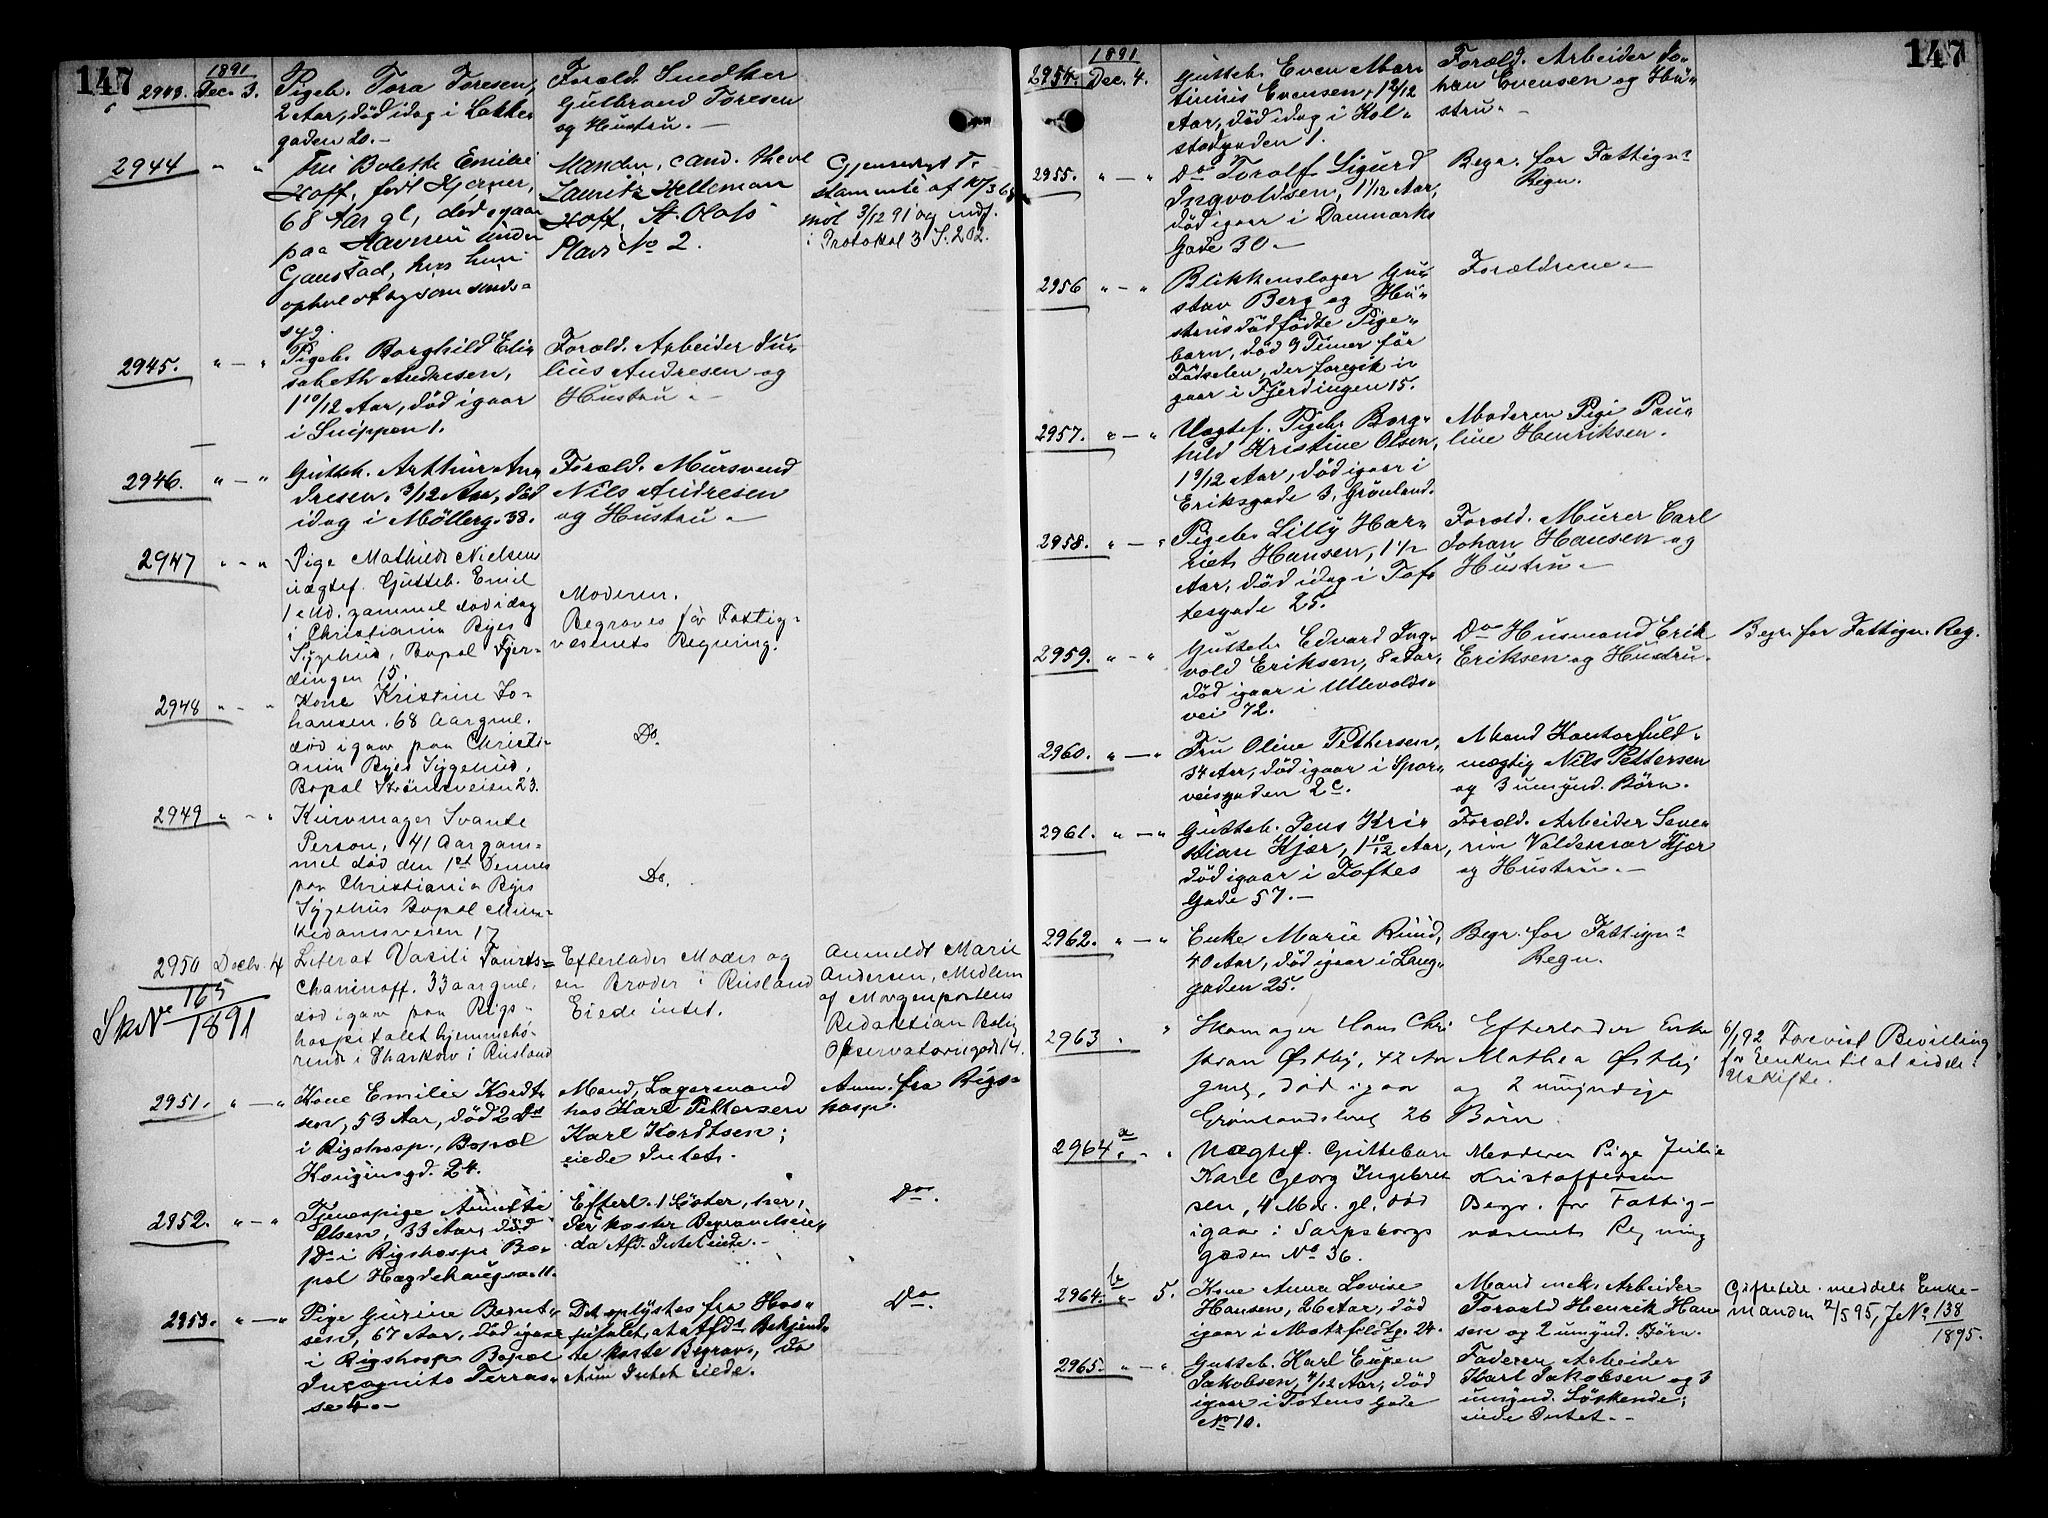 147
1891
2943. Dec. 3. Pigeb. Tora Toresen,
2 Aar, død idag i Lakke
gaden 20. —
Foræld. Snedker
Gulbrand Toresen
og Hustru. —
2944 " " Fru Bolette Emilie
Hoff, født Kjerner,
68 Aar gl, død igaar
paa Havnen under
Gaustad, hvor hun
opholdt sig som sinds=
syg.
Manden, cand. theol
Lauritz Kelleman
Hoff, St. Olafs
Plads No 2.
Gjensidigt Te
stamente af
mdt 3/12 91 og indf.
i Protokol 3 S. 202.
2945. " — " Pigeb. Borghild Eli=
sabeth Andresen,
1 10/12 Aar, død igaar
i Snippen 1.
Foræld. Arbeider Ju=
lius Andresen og
Hustru. —
2946. " — " Gutteb. Arthur An=
dresen, 3/12 Aar, død
idag i Möllerg. 38.
Foræld. Mursvend
Nils Andresen
og Hustru. —
2947 " - " Pige Mathilde Nielsens
uægtef. Gutteb. Emil
1 Md. gammel død idag
i Christiania Byes
Sygehus, Bopæl Fjer=
dingen 15.
Moderen.
Begraves för Fattig=
væsenets Regning.
2948 " - " Kone Kristine Jo=
hansen. 68 Aar gml.
död igaar paa Christi=
ania Byes Sygehus,
Bopæl Strömsveien 23.
Do.
2949 " - " Kurvmager Svante
Person, 41 Aar gam=
mel død den 1st Dennes
paa Christiania Byes
Sygehus Bopæl Mun=
kedamsveien 17
Do.
2950 Decbr. 4 Literat Vasili
33 aar gml.
död igaar paa Rigs=
hospitalet hjemmehö=
rende i Charkow i Rusland
Efterlader Moder og
en Broder i Rusland
Eiede intet.
Anmeldt Marie
Andersen, Medlem
af Morgenpostens
Redaktion Bolig
Observatoriegade 14.
Sk. No 165/1891
2951. " — " Kone Emilie Kordt=
sen, 53 Aar, död 2 Ds
i Rigshosp., Bopæl
Kongensgd. 24.
Mand, Lagermand
hos Karl Pettersen
Karl Kordtsen;
eiede Intet.
Anm. fra Rigs=
hosp.
2952. " — " Tjenestpige Annette
Olsen, 33 Aar, död
1 Ds i Rigshosp. Bo=
pæl Hægdehaugsv. 11.
Efterl. 1 Söster, her,
der koster Begravelsen,
da Afd. Intet eiede. —
Do.
2953. " — " Pige Gurine Bernt=
sen, 67 Aar, död igaar
i Rigshosp. Bopæl
Incognito Terras=
se 4. —
Det oplystes fra Hos=
pitalet, at Afds Bekjend=
te koste Begrav., da
hun Intet eiede.
Do.
147
1891
2954. Dec. 4. Gutteb. Even Mar=
tinius Evensen, 1 2/12
Aar, död idag i Kol=
stadgaden 1.
Foræld. Arbeider Jo=
han Evensen og Hu=
stru. —
2955. " — " Do Torolf Sigurd
Ingvoldsen, 1 1/12 Aar,
död igaar i Danmarks
Gade 30. —
Begr. for Fattigvs
Regn.
2956 " — " Blikkenslager Gu=
stav Berg og Hu=
strus dödfödte Pige=
barn, död 9 Timer för
Födselen, der foregik i=
gaar i Fjerdingen 15.
Forældrene. —
2957. " — " Uægtef. Pigeb. Borg=
hild Kristine Olsen,
1 9/12 Aar, död igaar i
Eriksgade 3, Grönland.
Moderen Pige Pau=
line Henriksen.
2958. " — " Pigeb. Lilly Har=
riet Hansen, 1 1/2
Aar, död idag i Tof=
tesgade 25.
Foræld. Murer Carl
Johan Hansen og
Hustru. —
2959. " — " Gutteb. Edvard Ing=
vold Eriksen, 8 Aar,
död igaar i Ullevolds=
vei 72.
Do Husmand Erik
Eriksen og Hustru.
Begr. for Fattigv. Reg.
2960. " — " Fru Oline Pettersen,
54 Aar, död igaar i Spor=
veisgaden 2c.
Mand Kontorfuld=
mægtig Nils Pettersen
og 3 umynd. Börn.
2961. " — " Gutteb. Jens Kri=
stian Kjær, 1 10/12 Aar,
död igaar i Toftes
Gade 57. —
Foræld. Arbeider Seve=
rin Valdemar Kjær
og Hustru. —
2962. " — " Enke Marie Ruud,
40 Aar, död igaar i Lang=
gaden 25.
Begr. for Fattigvs
Regn.
2963 " Skomager Hans Chri
stian Østby, 42 Aar
gml, död igaar
Grönlandsleret 26
Efterlader Enke
Mathea Østby
og 2 umyndige
Börn.
6/1 92 Forevist Bevilling
for Enken til at sidde i
Uskifte.
2964 a " - " Uægtef. Guttebarn
Karl Georg Ingebret
sen, 4 Mdr. gl, död
igaar i Sarpsborgs
gaden No 36.
Moderen Pige Julie
Kristoffersen
Begr. for Fattig=
væsenets Regning
2964. b " 5. Kone Anna Lovise
Hansen, 26 Aar, död
igaar i Motzfeldtg. 24.
Mand mek. Arbeider
Torvald Henrik Han
sen og 2 umynd. Börn.
Gifteatt. meddelt Enke=
manden 2/5 95, J No 138/1895.
2965. " — " Gutteb. Karl Eugen
Jakobsen, 4/12 Aar, död
igaar i Totens Gade
No 10.
Faderen Arbeider
Karl Jakobsen og 3
umynd. Söskende;
eiede Intet. —